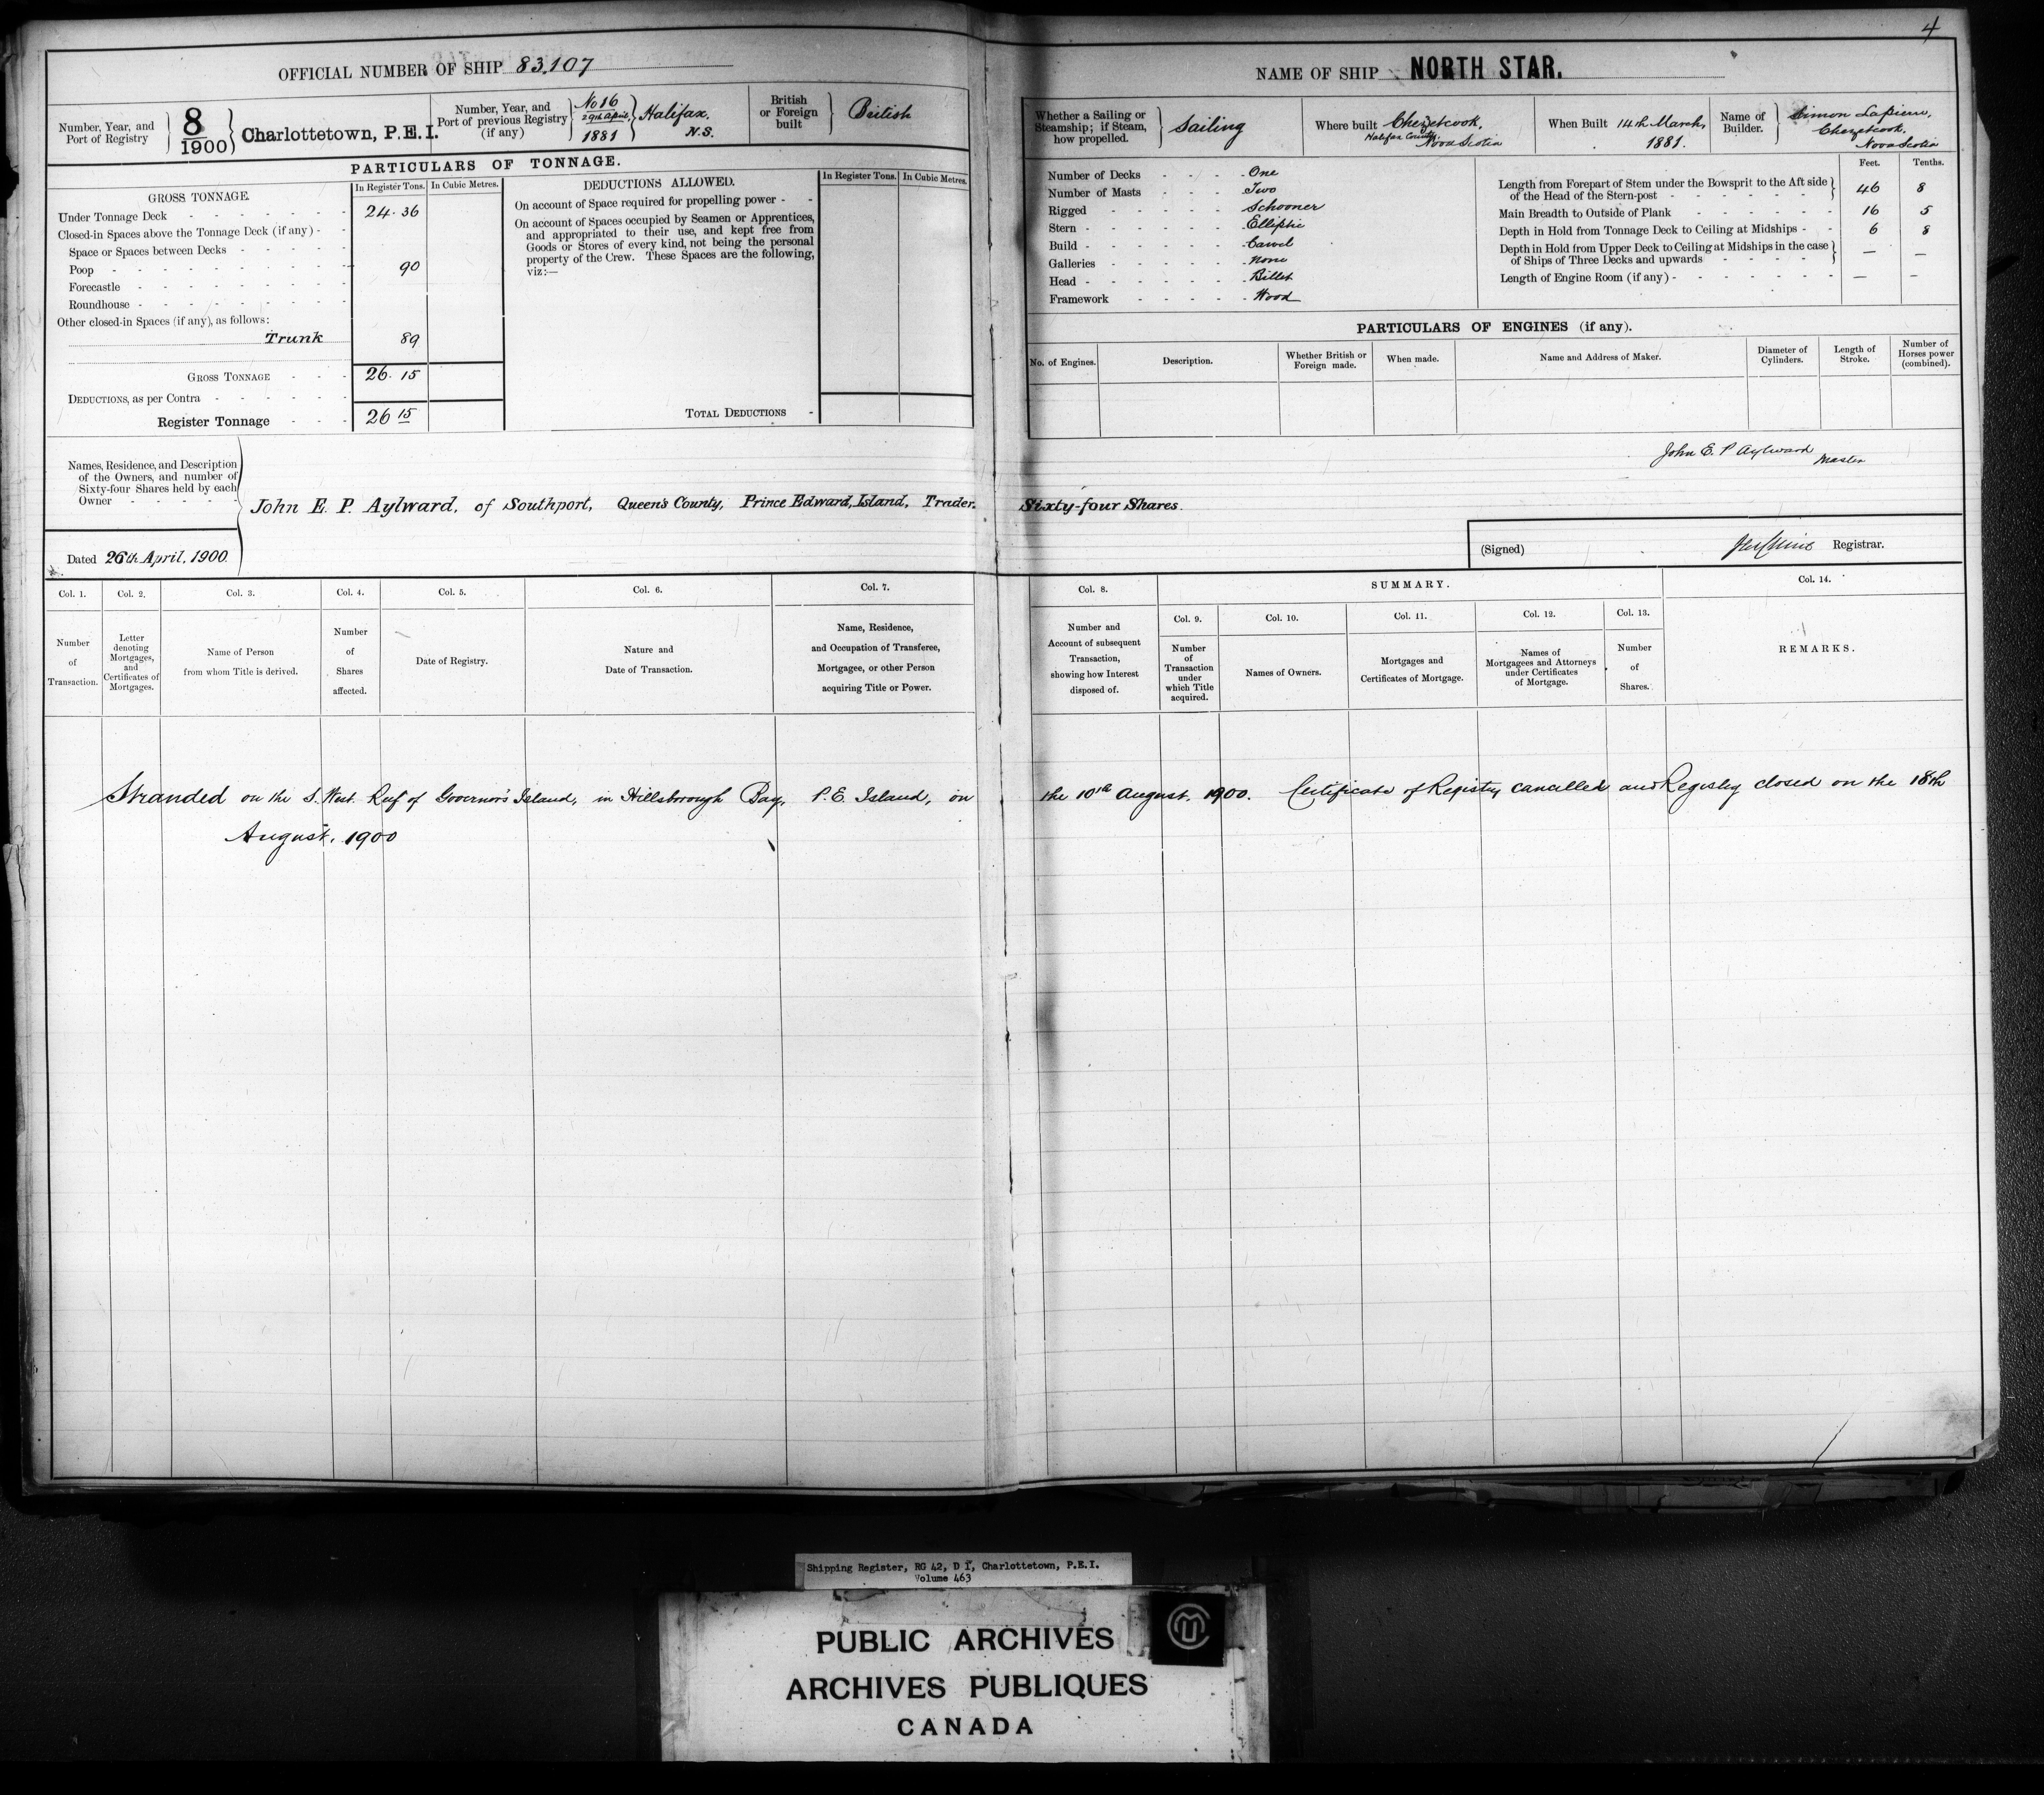 4
OFFICIAL NUMBER OF SHIP 83,107
Number, Year, and Port of Registry 8/1900 Charlottetown, P.E.I.
Number, Year, and Port of previous Registry (if any) No 16 29th April 1881 Halifax, N.S.
British or Foreign built British
PARTICULARS OF TONNAGE.
GROSS TONNAGE. In Register Tons. In Cubic Metres.
Under Tonnage Deck 24.36
Closed-in Spaces above the Tonnage Deck (if any)
Space or Spaces between Decks
Poop 90
Forecastle
Roundhouse
Other closed-in Spaces (if any), as follows:
Trunk 89
GROSS TONNAGE 26.15
DEDUCTIONS, as per Contra
Register Tonnage 26 15
DEDUCTIONS ALLOWED. In Register Tons. In Cubic Metres.
On account of Space required for propelling power
On account of Spaces occupied by Seamen or Apprentices,
and appropriated to their use, and kept free from
Goods or Stores of every kind, not being the personal
property of the Crew. These Spaces are the following,
viz:—
TOTAL DEDUCTIONS
NAME OF SHIP NORTH STAR.
Whether a Sailing or Steamship; if Steam, how propelled. Sailing
Where built Chezetcook, Halifax County, Nova Scotia
When Built 14th March, 1881.
Name of Builder. Simon Lapierre, Chezetcook, Nova Scotia
Number of Decks One
Number of Masts Two
Rigged Schooner
Stern Elliptic
Build Carvel
Galleries None
Head Billet
Framework Wood
Feet. Tenths.
Length from Forepart of Stem under the Bowsprit to the Aft side of the Head of the Stern-post 46 8
Main Breadth to Outside of Plank 16 5
Depth in Hold from Tonnage Deck to Ceiling at Midships 6 8
Depth in Hold from Upper Deck to Ceiling at Midships in the case of Ships of Three Decks and upwards — —
Length of Engine Room (if any) — —
PARTICULARS OF ENGINES (if any).
No. of Engines. Description. Whether British or Foreign made. When made. Name and Address of Maker. Diameter of Cylinders. Length of Stroke. Number of Horses power (combined).
John E. P Aylward Master
Names, Residence, and Description
of the Owners, and number of
Sixty-four Shares held by each
Owner
John E. P. Aylward, of Southport, Queen's County, Prince Edward, Island, Trader. Sixty-four Shares.
Dated 26th April, 1900.
(Signed) Registrar.
Col. 1. Number of Transaction.
Col. 2. Letter denoting Mortgages, and Certificates of Mortgages.
Col. 3. Name of Person from whom Title is derived.
Col. 4. Number of Shares affected.
Col. 5. Date of Registry.
Col. 6. Nature and Date of Transaction.
Col. 7. Name, Residence, and Occupation of Transferee, Mortgagee, or other Person acquiring Title or Power.
Col. 8. Number and Account of subsequent Transaction, showing how Interest disposed of.
SUMMARY.
Col. 9. Number of Transaction under which Title acquired.
Col. 10. Names of Owners.
Col. 11. Mortgages and Certificates of Mortgage.
Col. 12. Names of Mortgagees and Attorneys under Certificates of Mortgage.
Col. 13. Number of Shares.
Col. 14. REMARKS.
Stranded on the S. West Reef of Governor's Island, in Hillsborough Bay, P. E. Island, on the 10th August, 1900. Certificate of Registry cancelled and Registry closed on the 18th
August, 1900
Shipping Register, RG 42, D I, Charlottetown, P.E.I.
Volume 463
PUBLIC ARCHIVES
ARCHIVES PUBLIQUES
CANADA